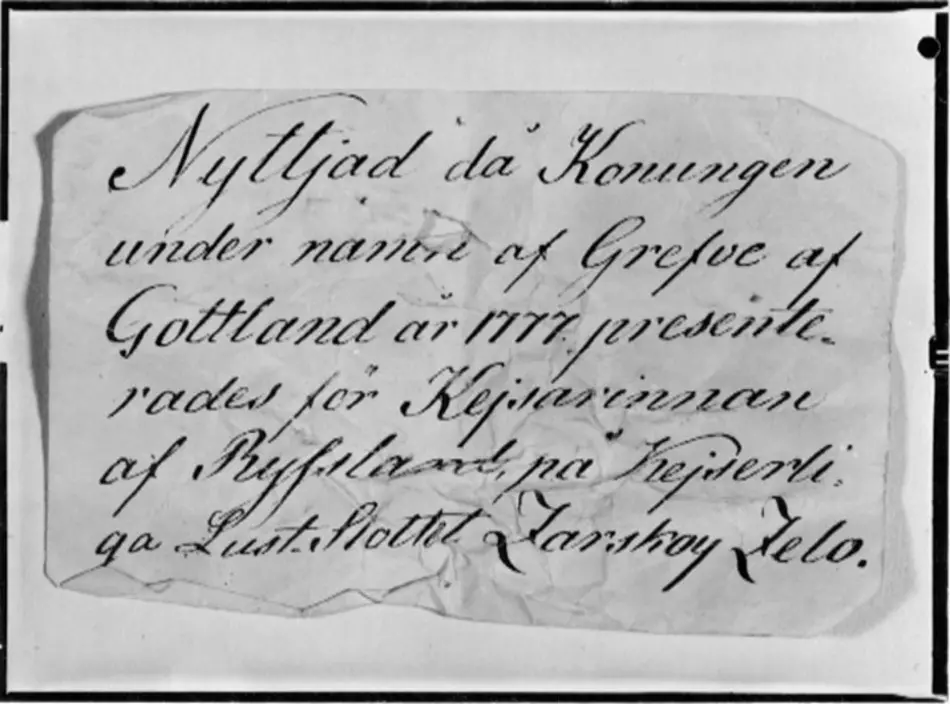 Nyttjad då Konungen
under namn af Grefve af
Gottland år 1777. presente-
rades för Kejsarinnan
af Ryssland, på Kejserli-
ga Lust-Slottet Zarskoy Zelo.